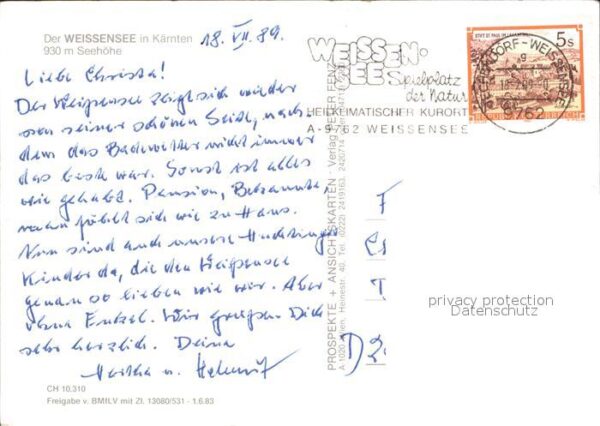 Der WEISSENSEE in Kärnten
930 m Seehöhe
18. VII. 89.
Liebe Christa!
Der Weißensee zeigt sich wieder
von seiner schönen Seite, nach
dem das Badewetter nicht immer
das beste war. Sonst ist alles
wie gehabt. Pension, Bekannte,
man fühlt sich wie zu Haus.
Nun sind auch unsere
Kinder da, die den Weißensee
genau so lieben wie wir. Aber
ohne Enkel. Wir grüßen Dich
sehr herzlich. Deine
Martha u. Helmut
CH 10,310
Freigabe v. BMILV mit Zl. 13080/531 - 1.6.83
PROSPEKTE + ANSICHTSKARTEN · Verlag PETER FENZ
A 1020 Wien, Heinestr. 40, Tel. (0222) 2419163, 2420714
WEISSEN-
SEE
Spielplatz
der Natur
HEILKLIMATISCHER KURORT
A-9762 WEISSENSEE
5 S
9762
F
T
D
privacy protection
Datenschutz